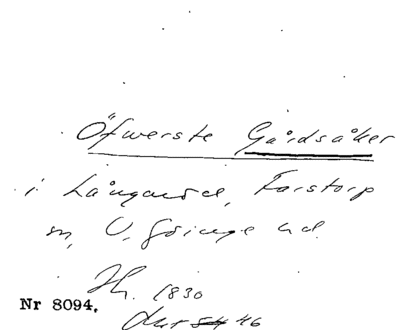 Öfwerste Gårdsåker
i Långaröd, Farstorp
sn, V. Göinge hd.
Jh. 1830
Nr 8094.
akt 46